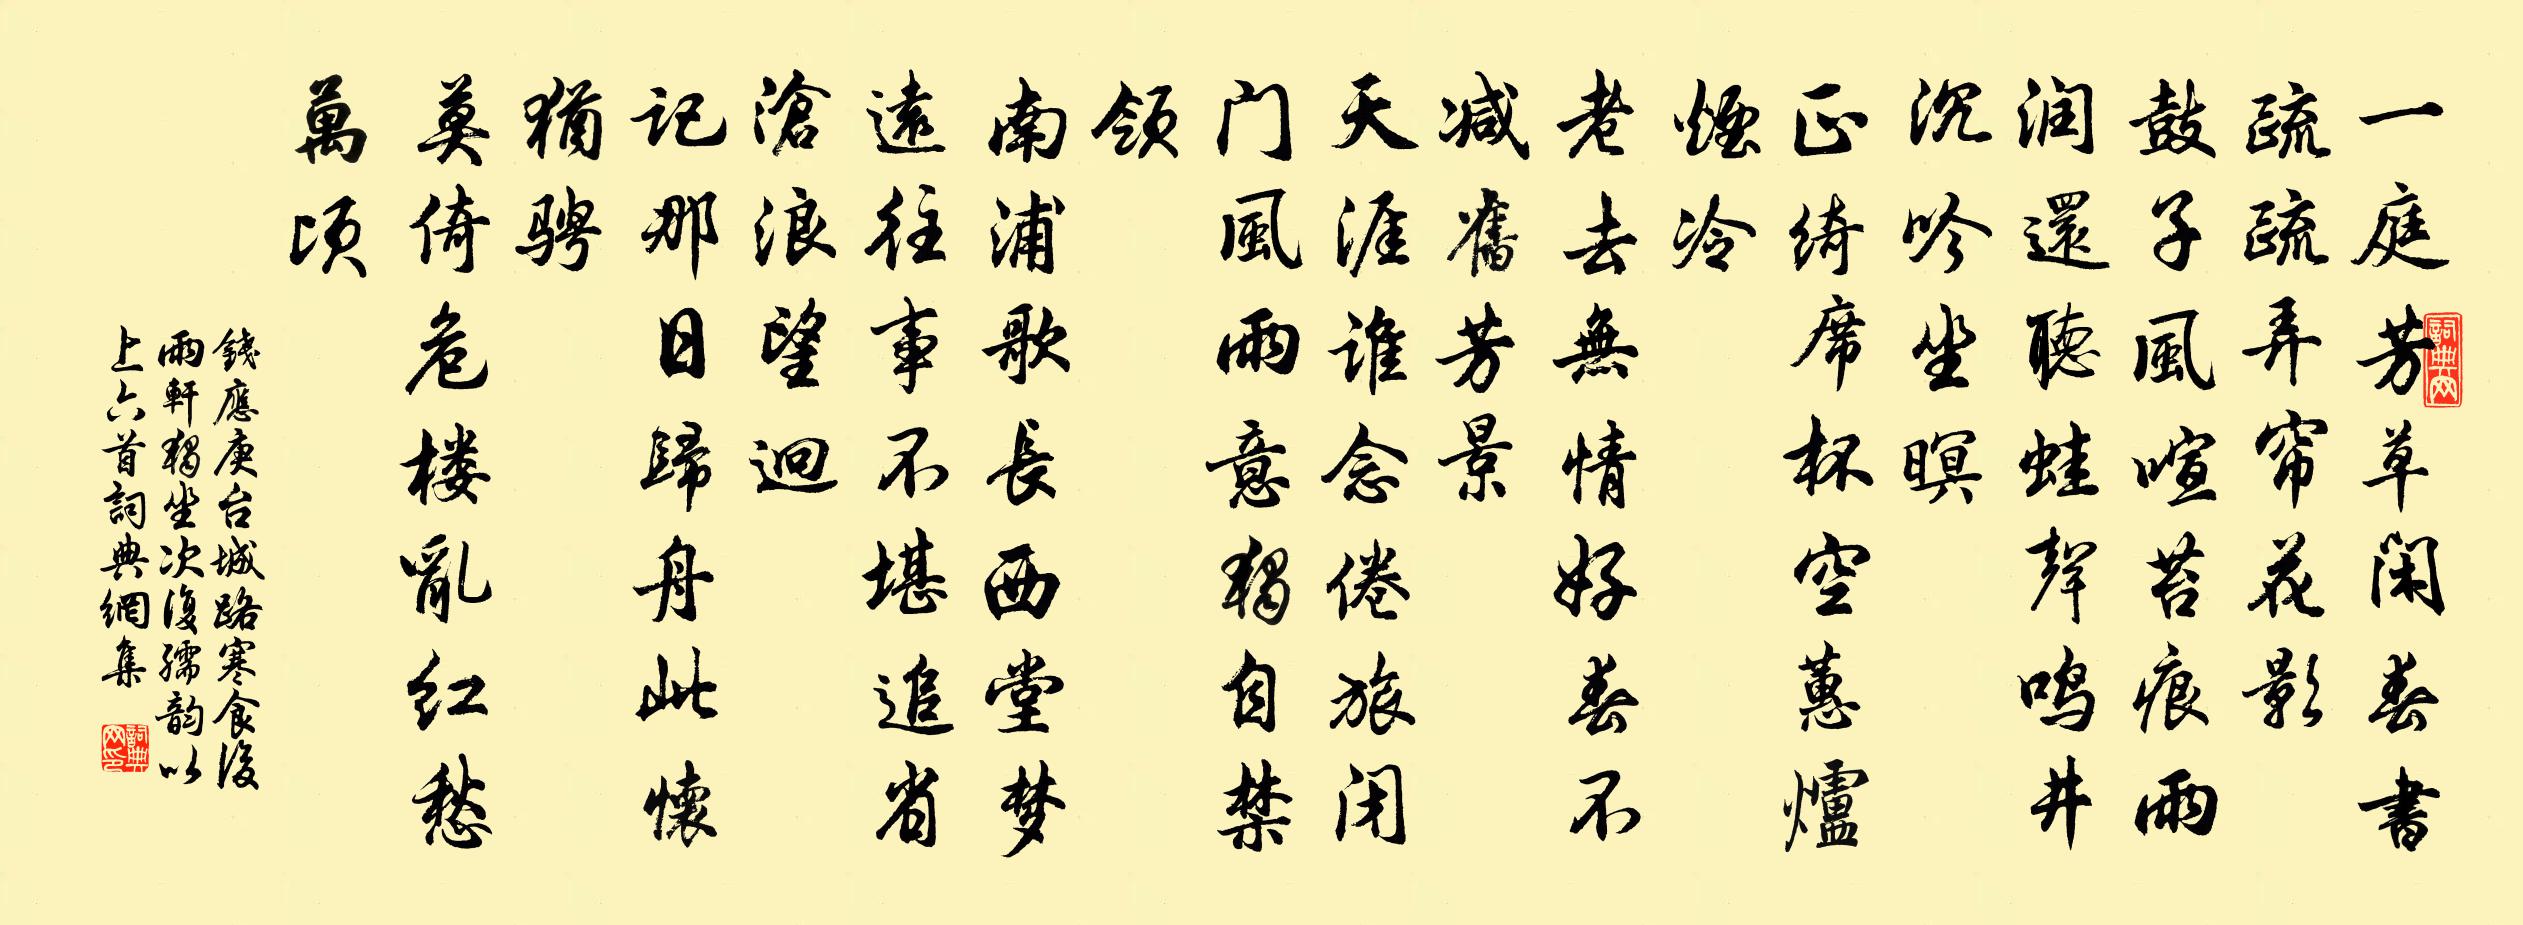 一庭芳草闲春書
疏疏弄帘花影
鼓子風喧苔痕雨
润還聽蛙聲鸣井
沉吟坐暝
正绮席杯空蕙爐
煙冷
老去無情好春不
减舊芳景
天涯谁念倦旅闭
门風雨意獨自禁
领
南浦歌長西堂梦
遠往事不堪追省
滄浪望迴
记那日歸舟此懷
猶骋
莫倚危楼亂红愁
萬顷
錢應庚台城路寒食後
雨軒獨坐次復孺韵以
上六首詞典網集
詞典网
詞典网印